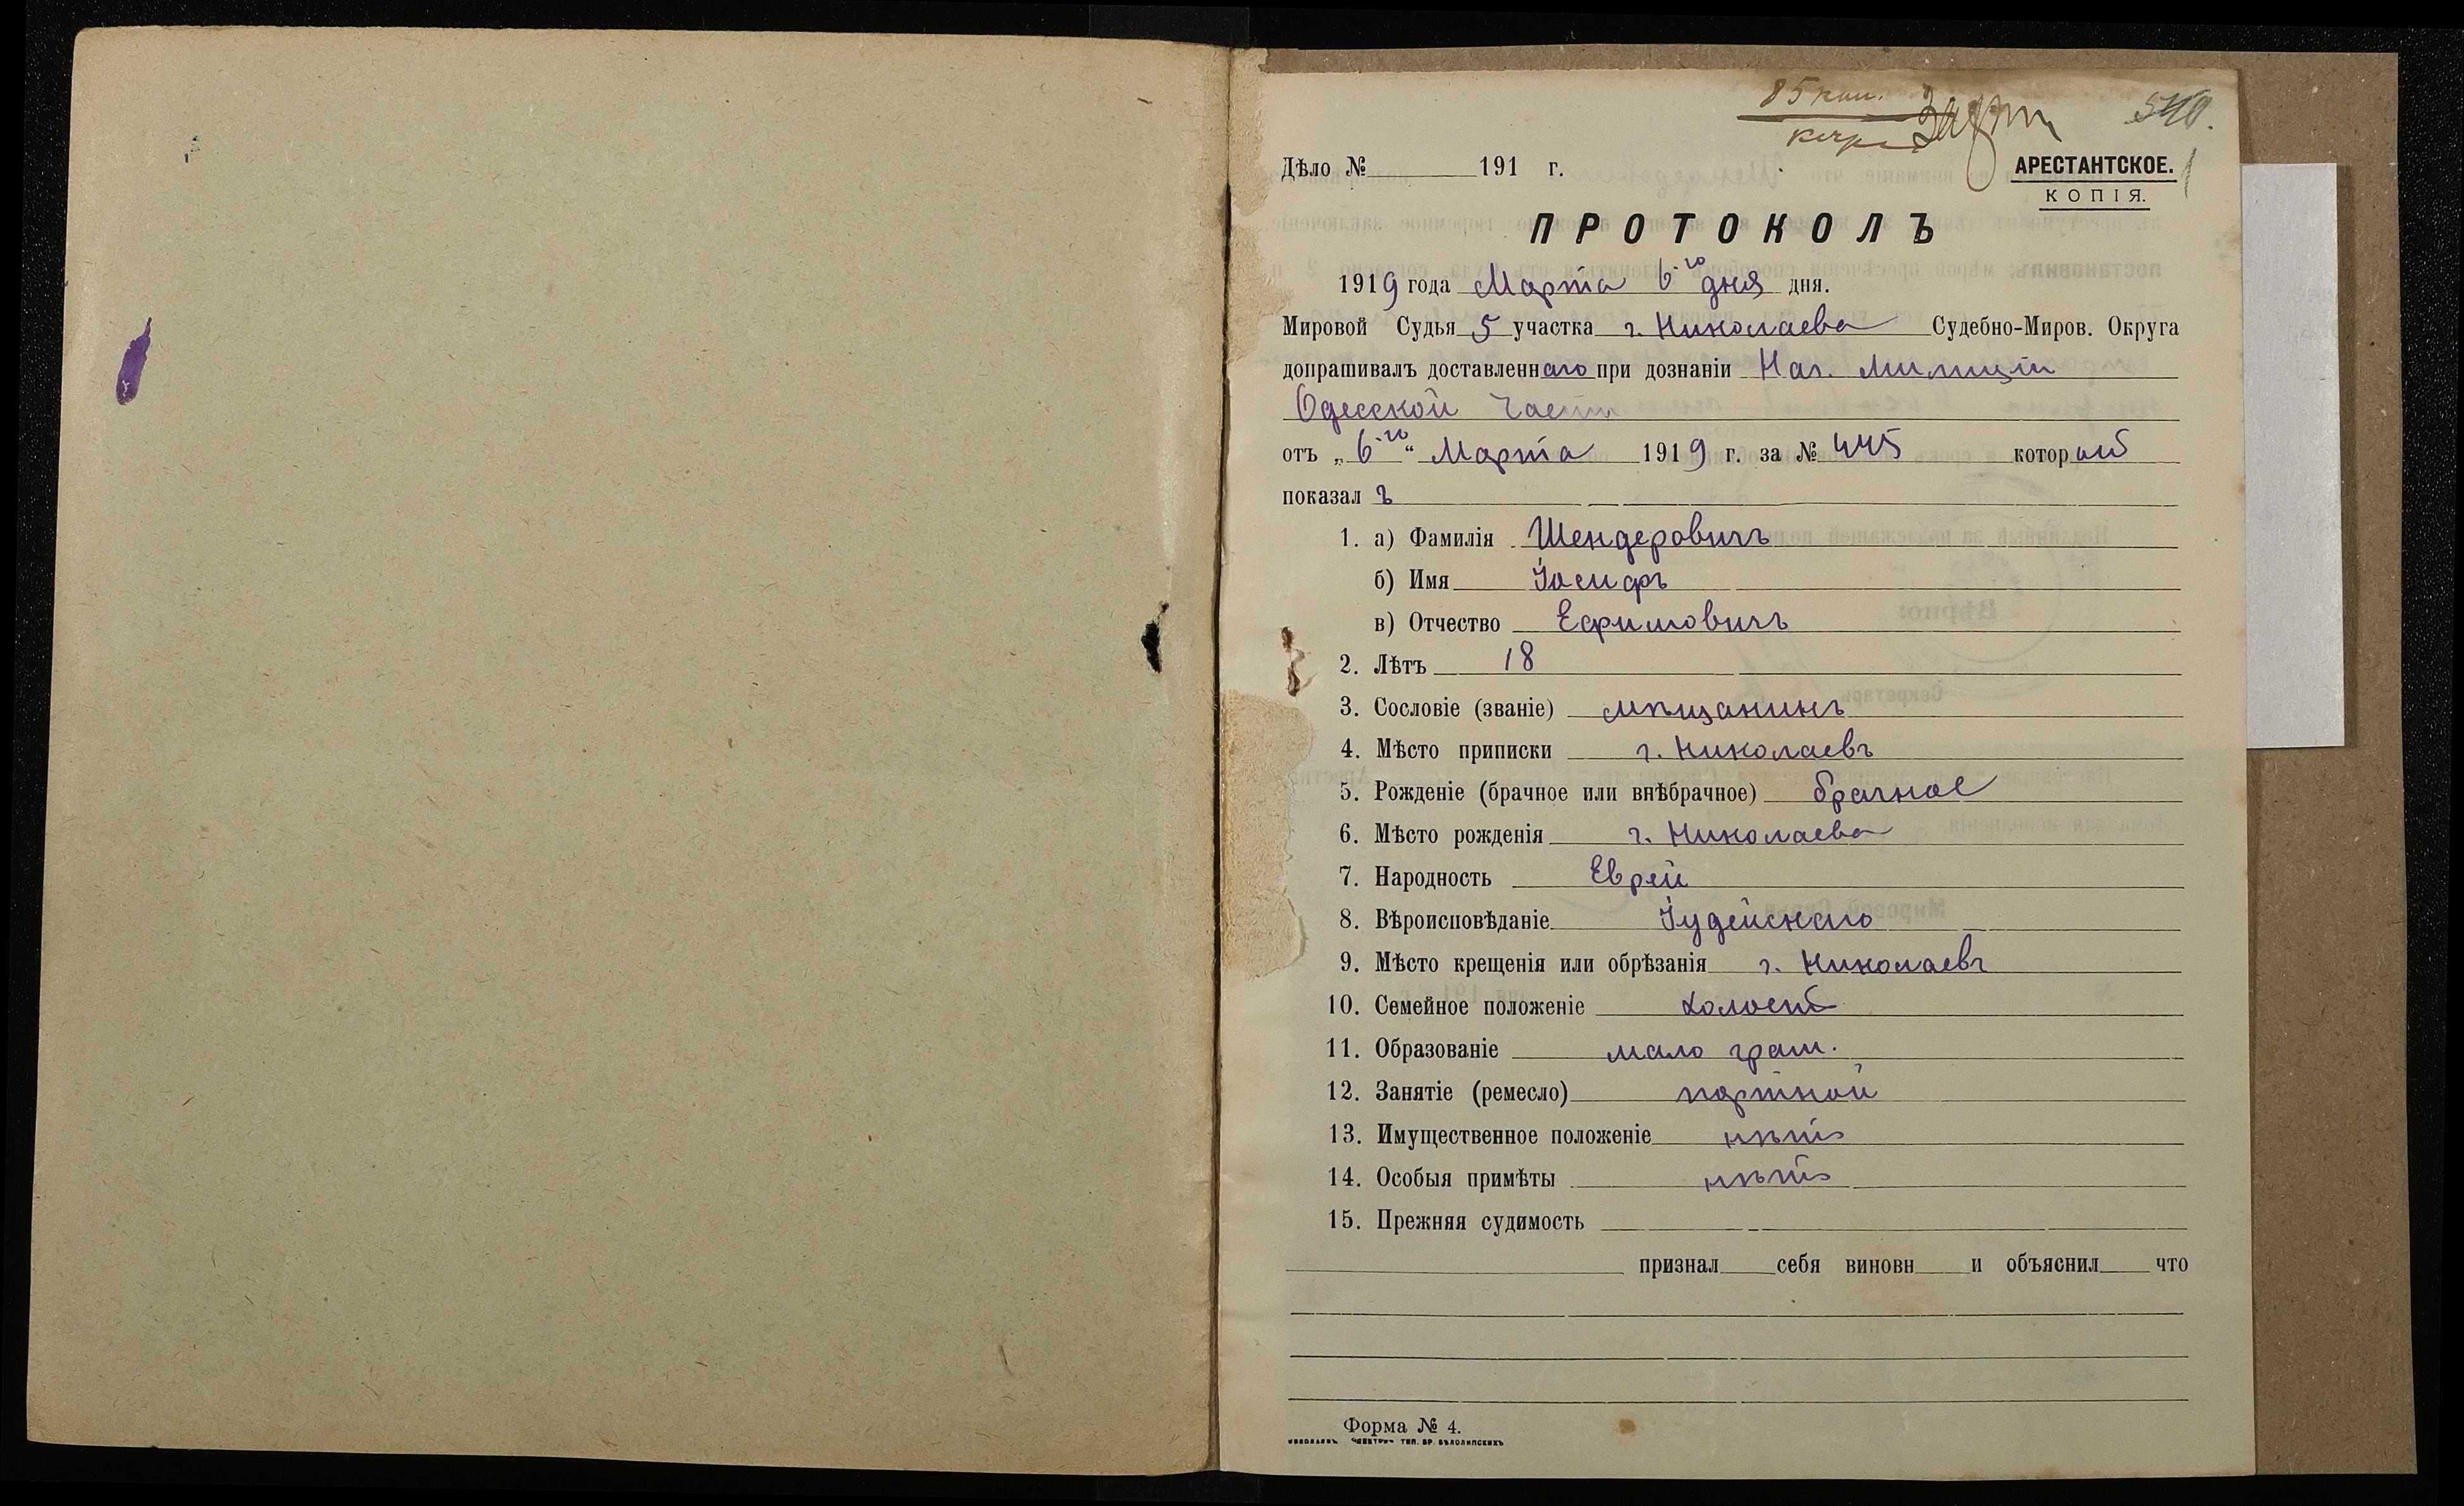 85 коп.
540.
Дѣло № 191 г.
АРЕСТАНТСКОЕ. 1
КОПІЯ.
ПРОТОКОЛЪ
1919 года Марта 6-го дня дня.
Мировой Судья 5 участка г. Николаева Судебно-Миров. Округа
допрашивалъ доставленнаго при дознаніи Нач. Милиціи
Одесской Части
отъ „6-го“ Марта 1919 г. за № 445 который
показалъ
1. а) Фамилія Шендеровичъ
б) Имя Іосифъ
в) Отчество Ефимовичъ
2. Лѣтъ 18
3. Сословіе (званіе) мѣщанинъ
4. Мѣсто приписки г. Николаевъ
5. Рожденіе (брачное или внѣбрачное) брачное
6. Мѣсто рожденія г. Николаева
7. Народность Еврей
8. Вѣроисповѣданіе Іудейскаго
9. Мѣсто крещенія или обрѣзанія г. Николаевъ
10. Семейное положеніе холостъ
11. Образованіе мало грам.
12. Занятіе (ремесло) портной
13. Имущественное положеніе нѣтъ
14. Особыя примѣты нѣтъ
15. Прежняя судимость
признал себя виновн и объяснил что
Форма № 4.